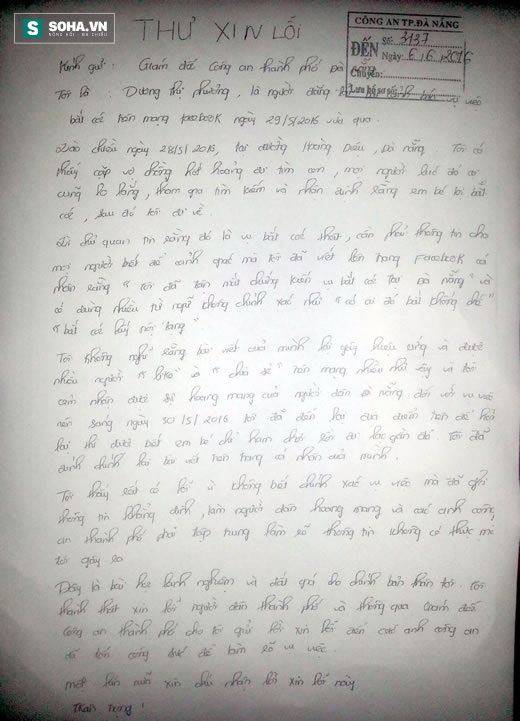 SOHA.VN
THƯ XIN LỖI
CÔNG AN TP.ĐÀ NẴNG
ĐẾN Số: 3137
Ngày: 6/6/2016
Chuyển:
Lưu hồ sơ số:
Kính gửi: Giám đốc Công an thành phố Đà
Tôi là : Dương Thị Phương, là người đăng cảnh báo vụ việc
bắt cóc trên mạng facebook ngày 29/5/2016 vừa qua.
Vào chiều ngày 28/5/2016, tại đường Hoàng Diệu, Đà Nẵng. Tôi có
thấy cặp vợ chồng hốt hoảng đi tìm con, mọi người lúc đó ai
cũng lo lắng, tham gia tìm kiếm và nhận định rằng em bé bị bắt
cóc, sau đó tôi đi về.
Vì chủ quan tin rằng đó là vụ bắt cóc thật, cần phải thông tin cho
mọi người biết để cảnh giác mà tôi đã viết lên trang Facebook cá
nhân rằng " tôi đã tận mắt chứng kiến vụ bắt cóc tại Đà Nẵng" và
có dùng nhiều từ ngữ không chính xác như " có ai đó bắt không đó"
" bắt cóc lấy nội tạng"
Tôi không nghĩ rằng bài viết của mình lại gây hiệu ứng và được
nhiều người " like" và " chia sẻ" trên mạng nhiều như vậy và tôi
cảm nhận được sự hoang mang của người dân Đà Nẵng đối với vụ việc
nên sáng ngày 30/5/2016 tôi đã đến lại địa điểm trên để hỏi
lại thì được biết em bé chỉ ham chơi rồi đi lạc gần đó. Tôi đã
đính chính lại bài viết trên trang cá nhân của mình.
Tôi thấy rất có lỗi vì không biết chính xác vụ việc mà đã ghi
thông tin khẳng định, làm người dân hoang mang và các anh công
an thành phố phải tập trung làm rõ thông tin không có thực mà
tôi gây ra
Đây là bài học kinh nghiệm và đắt giá cho chính bản thân tôi. Tôi
thành thật xin lỗi người dân thành phố và thông qua Giám đốc
Công an thành phố cho tôi gửi lời xin lỗi đến các anh công an
đã tốn công sức để làm rõ vụ việc.
một lần nữa xin chú nhận lời xin lỗi này
Trân trọng!